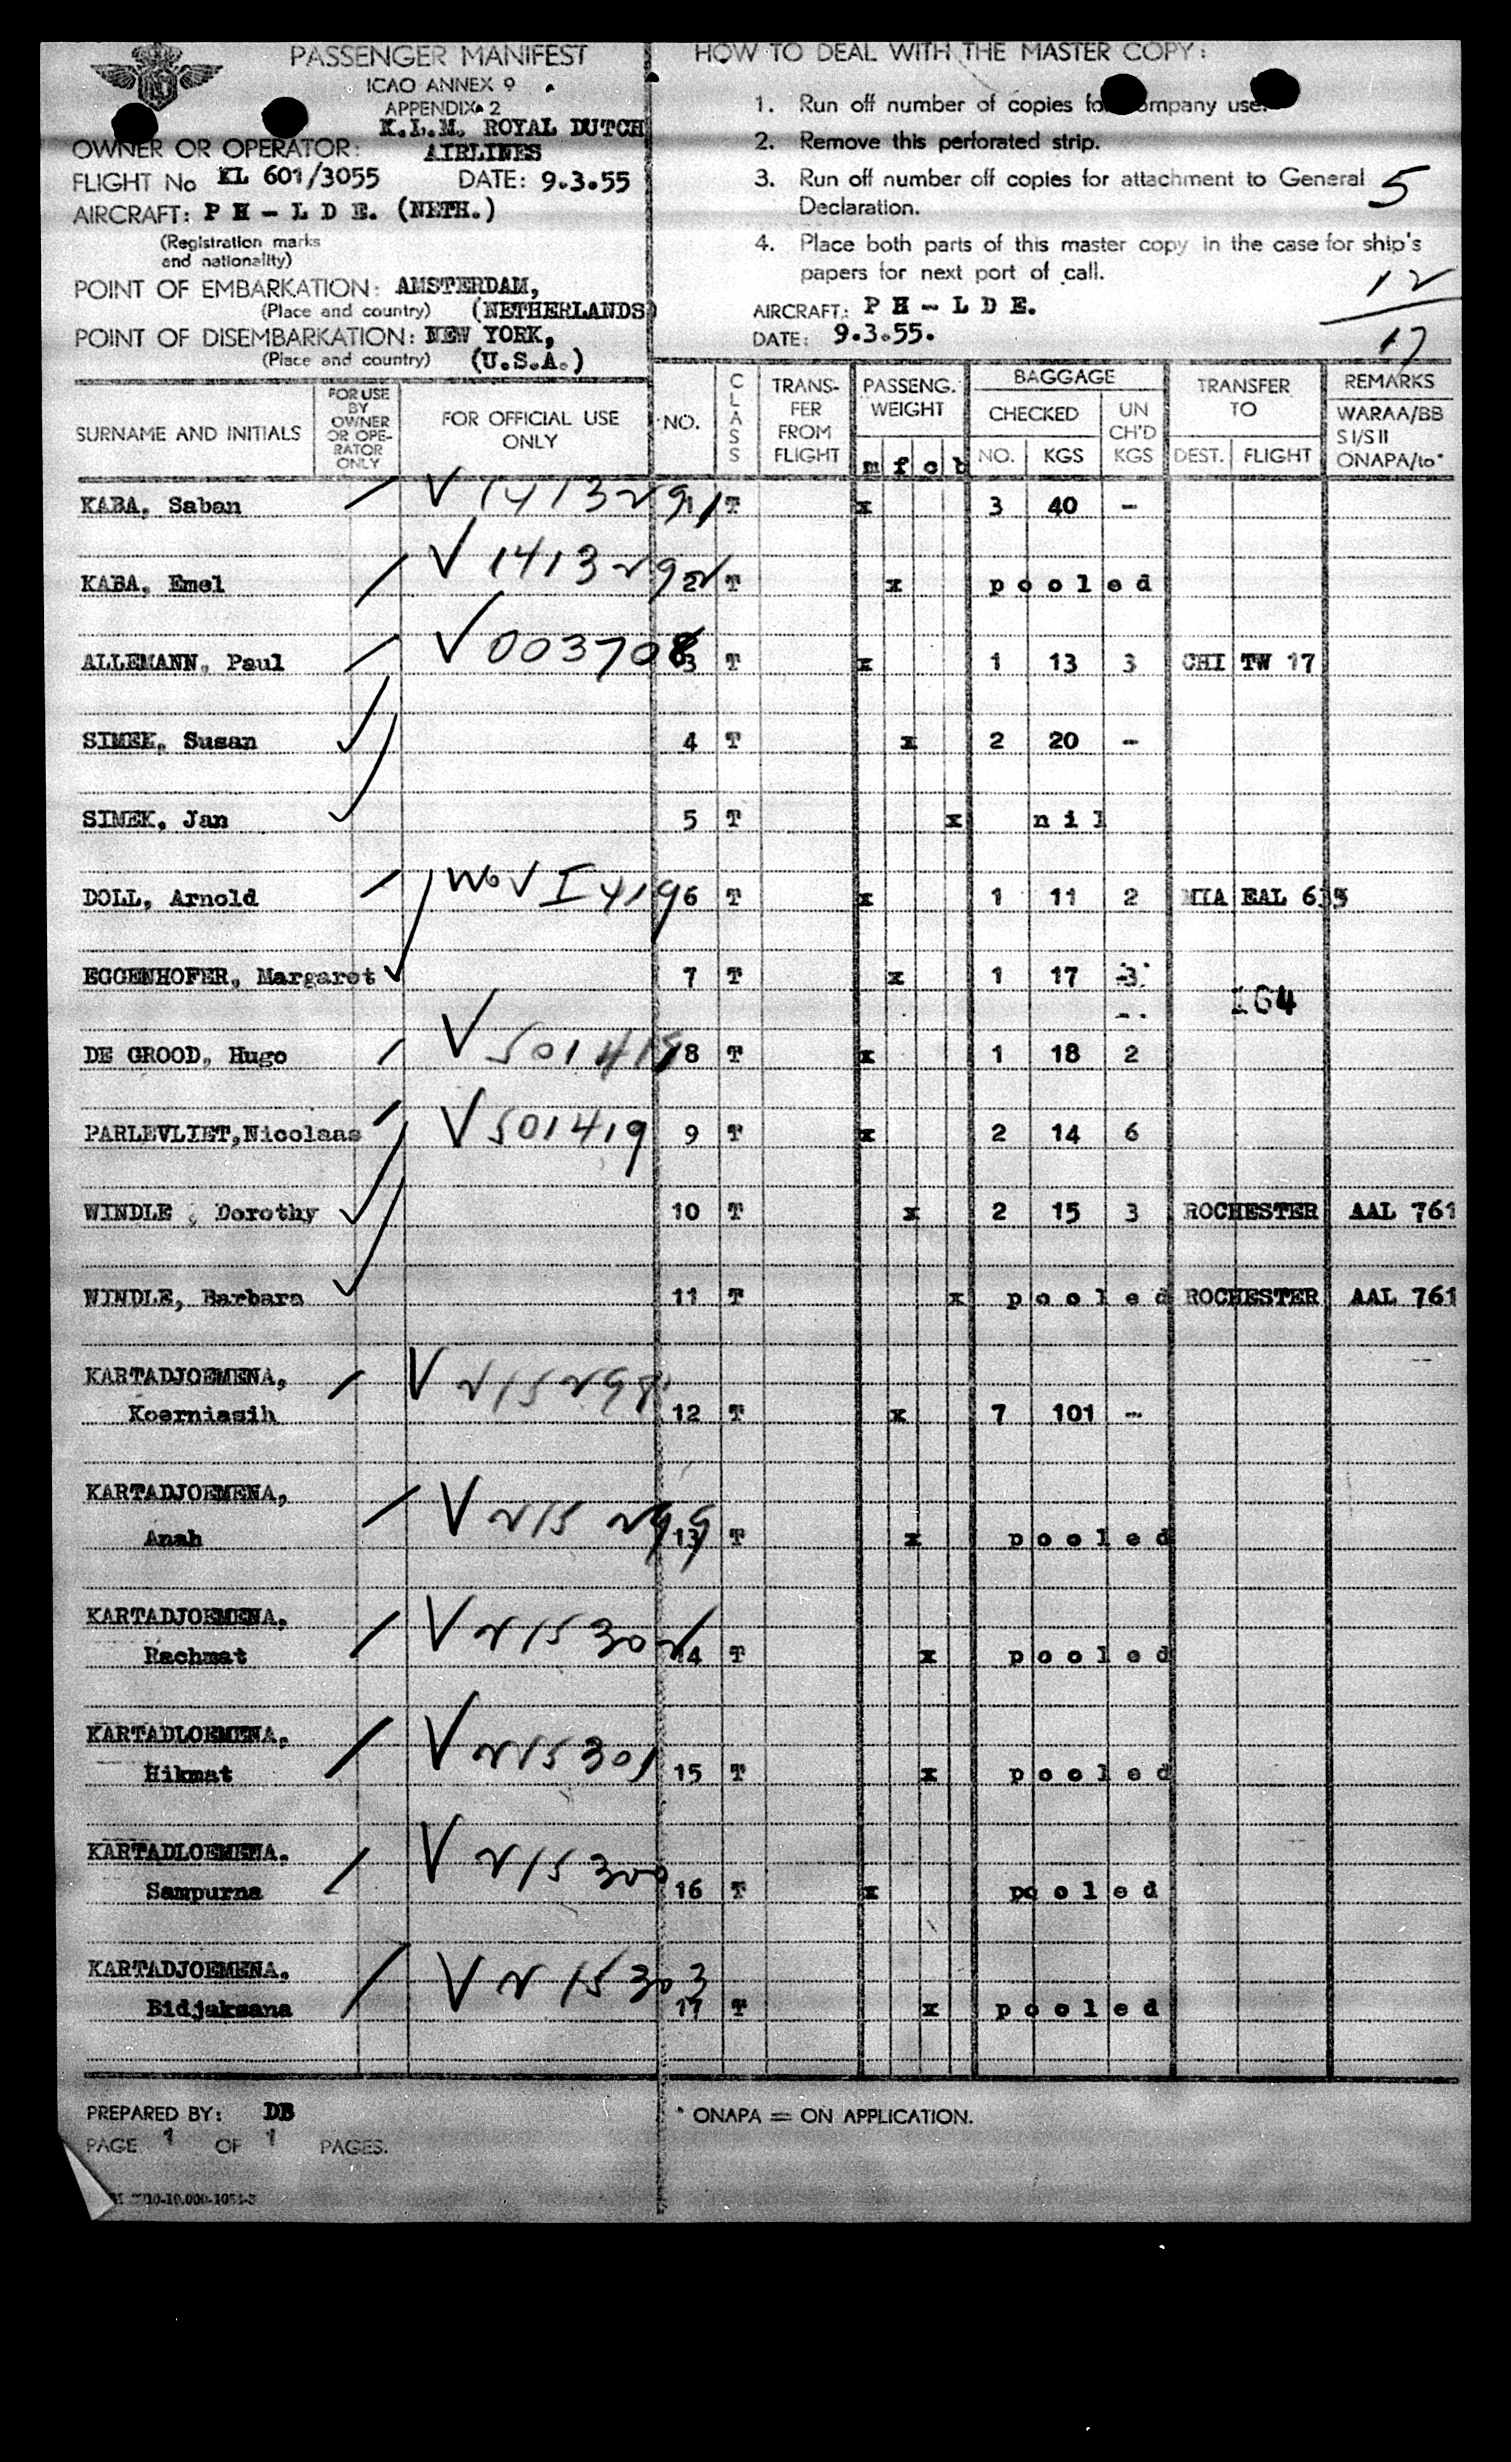 PASSENGER MANIFEST
ICAO ANNEX 9
APPENDIX 2
K.L.M. ROYAL DUTCH
OWNER OR OPERATOR: AIRLINES
FLIGHT No KL 601/3055 DATE: 9.3.55
AIRCRAFT: P H - L D E. (NETH.)
(Registration marks
and nationality)
POINT OF EMBARKATION: AMSTERDAM,
(Place and country) (NETHERLANDS)
POINT OF DISEMBARKATION: NEW YORK,
(Place and country) (U.S.A.)
HOW TO DEAL WITH THE MASTER COPY:
1. Run off number of copies for company use.
2. Remove this perforated strip.
3. Run off number off copies for attachment to General
Declaration.
5
4. Place both parts of this master copy in the case for ship's
papers for next port of call.
12
17
AIRCRAFT: P H - L D E.
DATE: 9.3.55.
SURNAME AND INITIALS
FOR USE
BY
OWNER
OR OPE-
RATOR
ONLY
FOR OFFICIAL USE
ONLY
NO.
CLASS
TRANS-
FER
FROM
FLIGHT
PASSENG.
WEIGHT
m f c b
BAGGAGE
CHECKED
NO. KGS
UN
CH'D
KGS
TRANSFER
TO
DEST. FLIGHT
REMARKS
WARAA/BB
S I/S II
ONAPA/to*
KABA, Saban V 1413291 1 T x 3 40 -
KABA, Emel V 1413292 2 T x pooled
ALLEMANN, Paul V 003708 3 T x 1 13 3 CHI TW 17
SIMEK, Susan 4 T x 2 20 -
SIMEK, Jan 5 T x nil
DOLL, Arnold V I 419 6 T x 1 11 2 MIA EAL
EGGENHOFER, Margaret 7 T x 1 17 3
164
DE GROOD, Hugo V 501418 8 T x 1 18 2
PARLEVLIET, Nicolaas V 501419 9 T x 2 14 6
WINDLE , Dorothy 10 T x 2 15 3 ROCHESTER AAL 761
WINDLE, Barbara 11 T x pooled ROCHESTER AAL 761
KARTADJOEMENA,
Koerniasih V 215298 12 T x 7 101 -
KARTADJOEMENA,
Anah V 215299 13 T x pooled
KARTADJOEMENA.
Rachmat V 215302 14 T x pooled
KARTADLOEMENA.
Hikmat V 215301 15 T x pooled
KARTADLOEMENA.
Sampurna V 215300 16 T x pooled
KARTADJOEMENA.
Bidjaksana V 215303 17 T x pooled
PREPARED BY: DB
* ONAPA = ON APPLICATION.
PAGE 1 OF 1 PAGES.